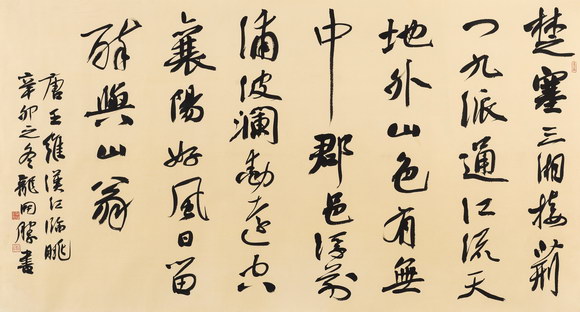 楚塞三湘接荊
门九派通江流天
地外山色有無
中郡邑浮前
浦波瀾動遠空
襄陽好風日留
醉與山翁
唐王維漢江臨眺
辛卯之冬龍開勝書